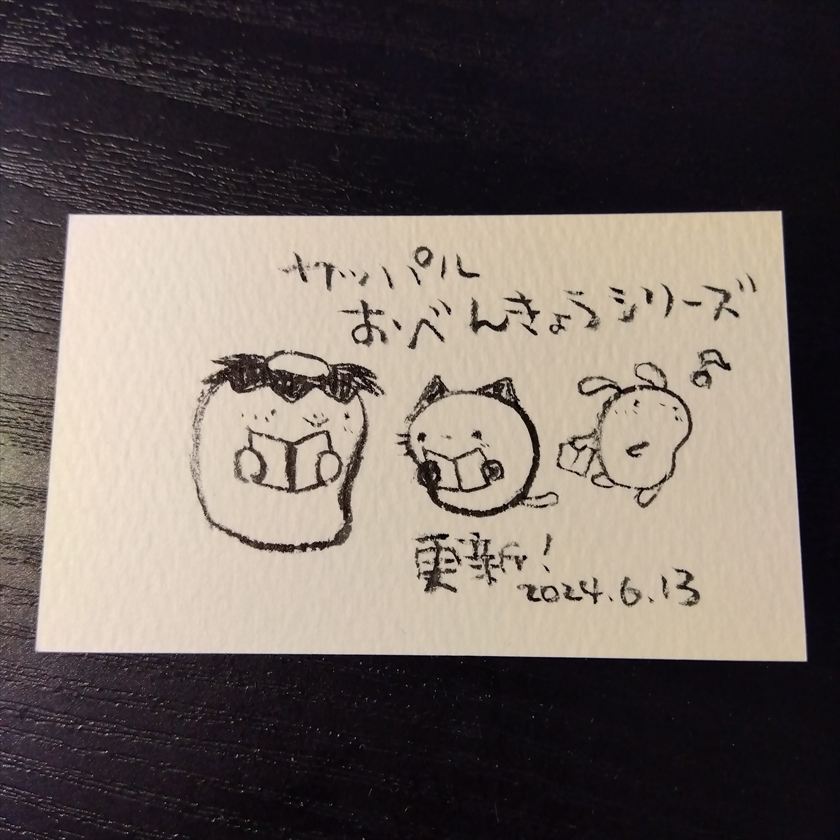 サッパル
おべんきょうシリーズ
更新!
2024.6.13